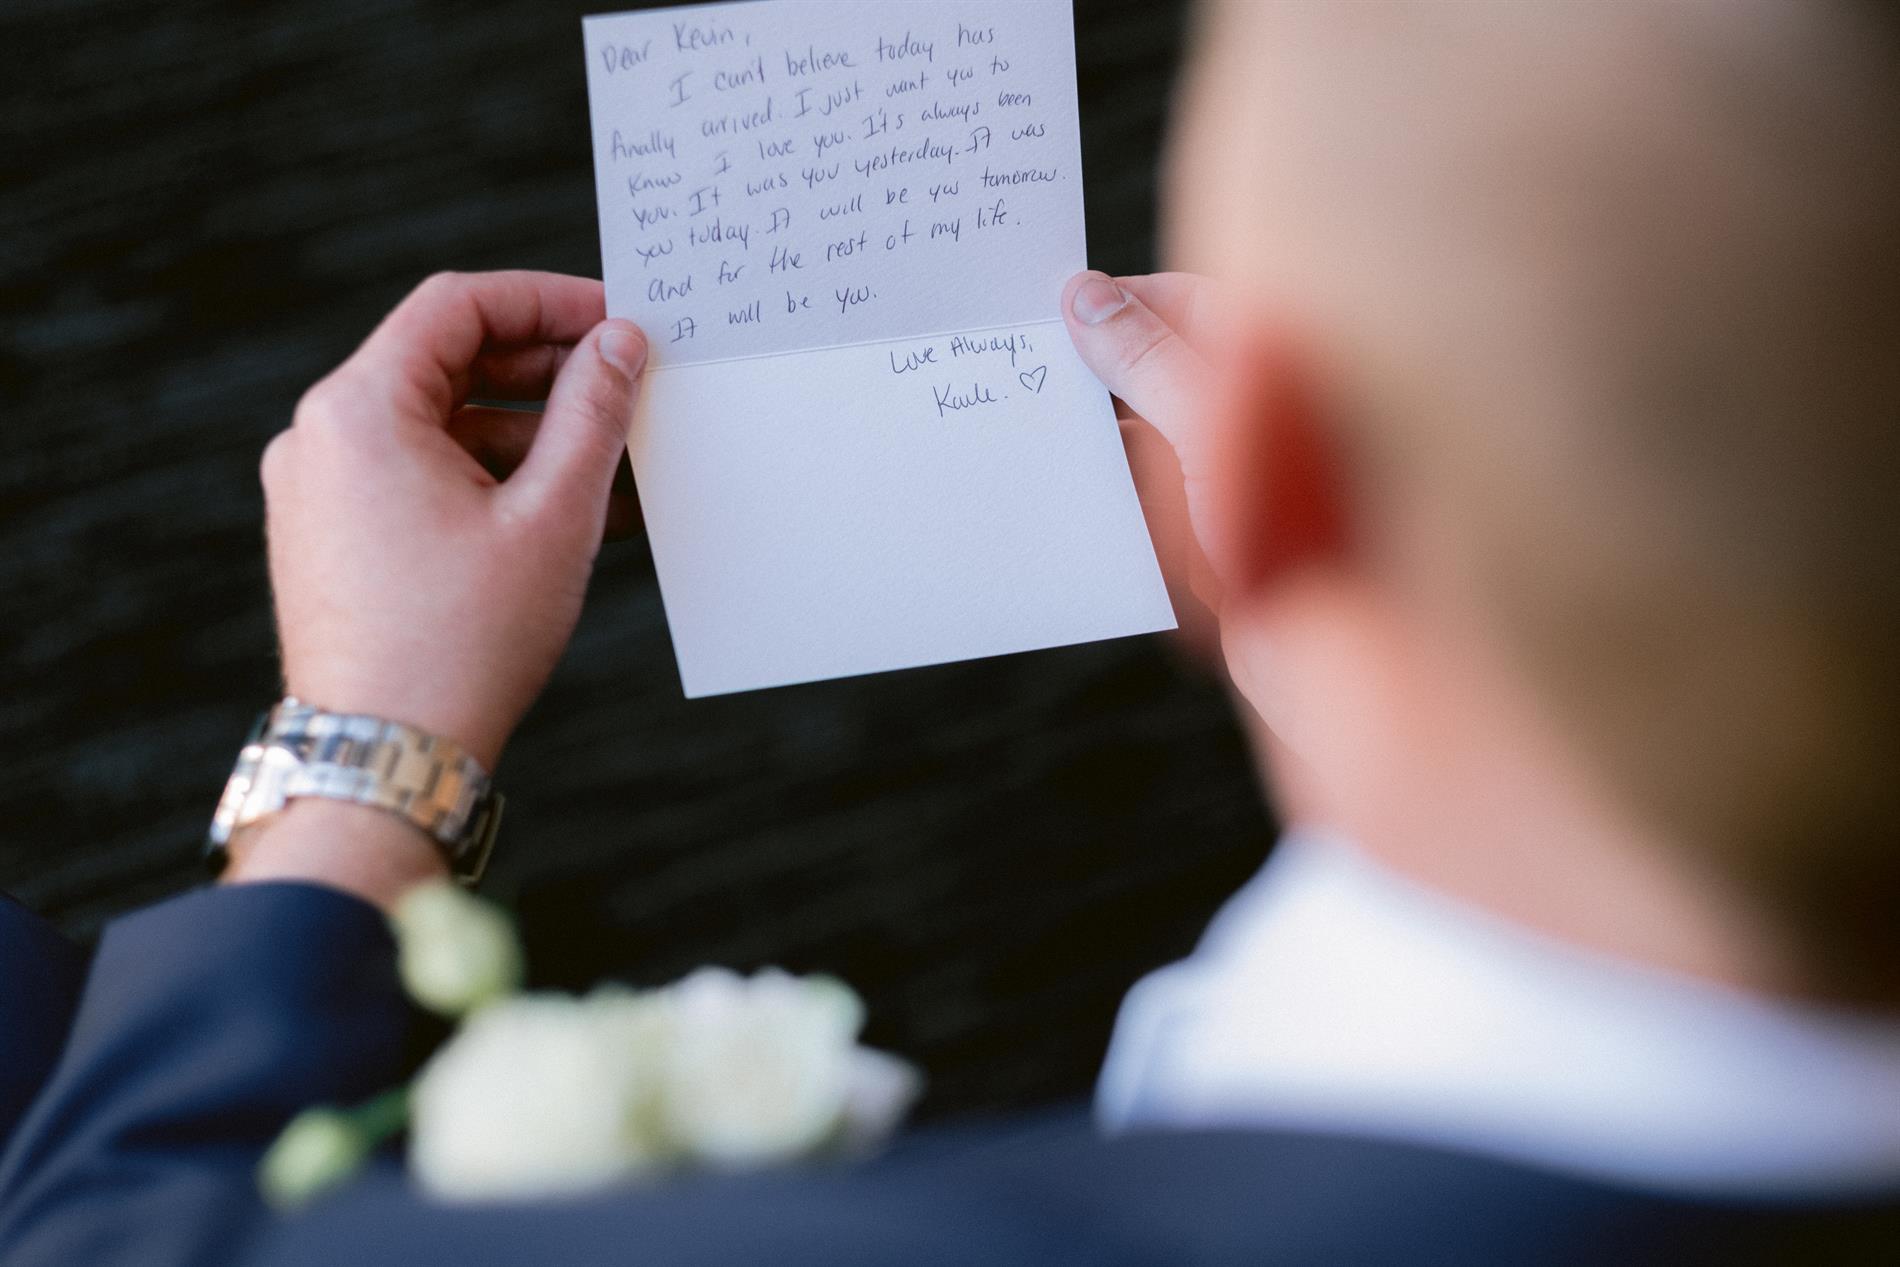 Dear Kevin,
I can't believe today has
finally arrived. I just want you to
know I love you. It's always been
you. It was you yesterday. It was
you today. It will be you tomorrow.
And for the rest of my life.
It will be you.
Love Always,